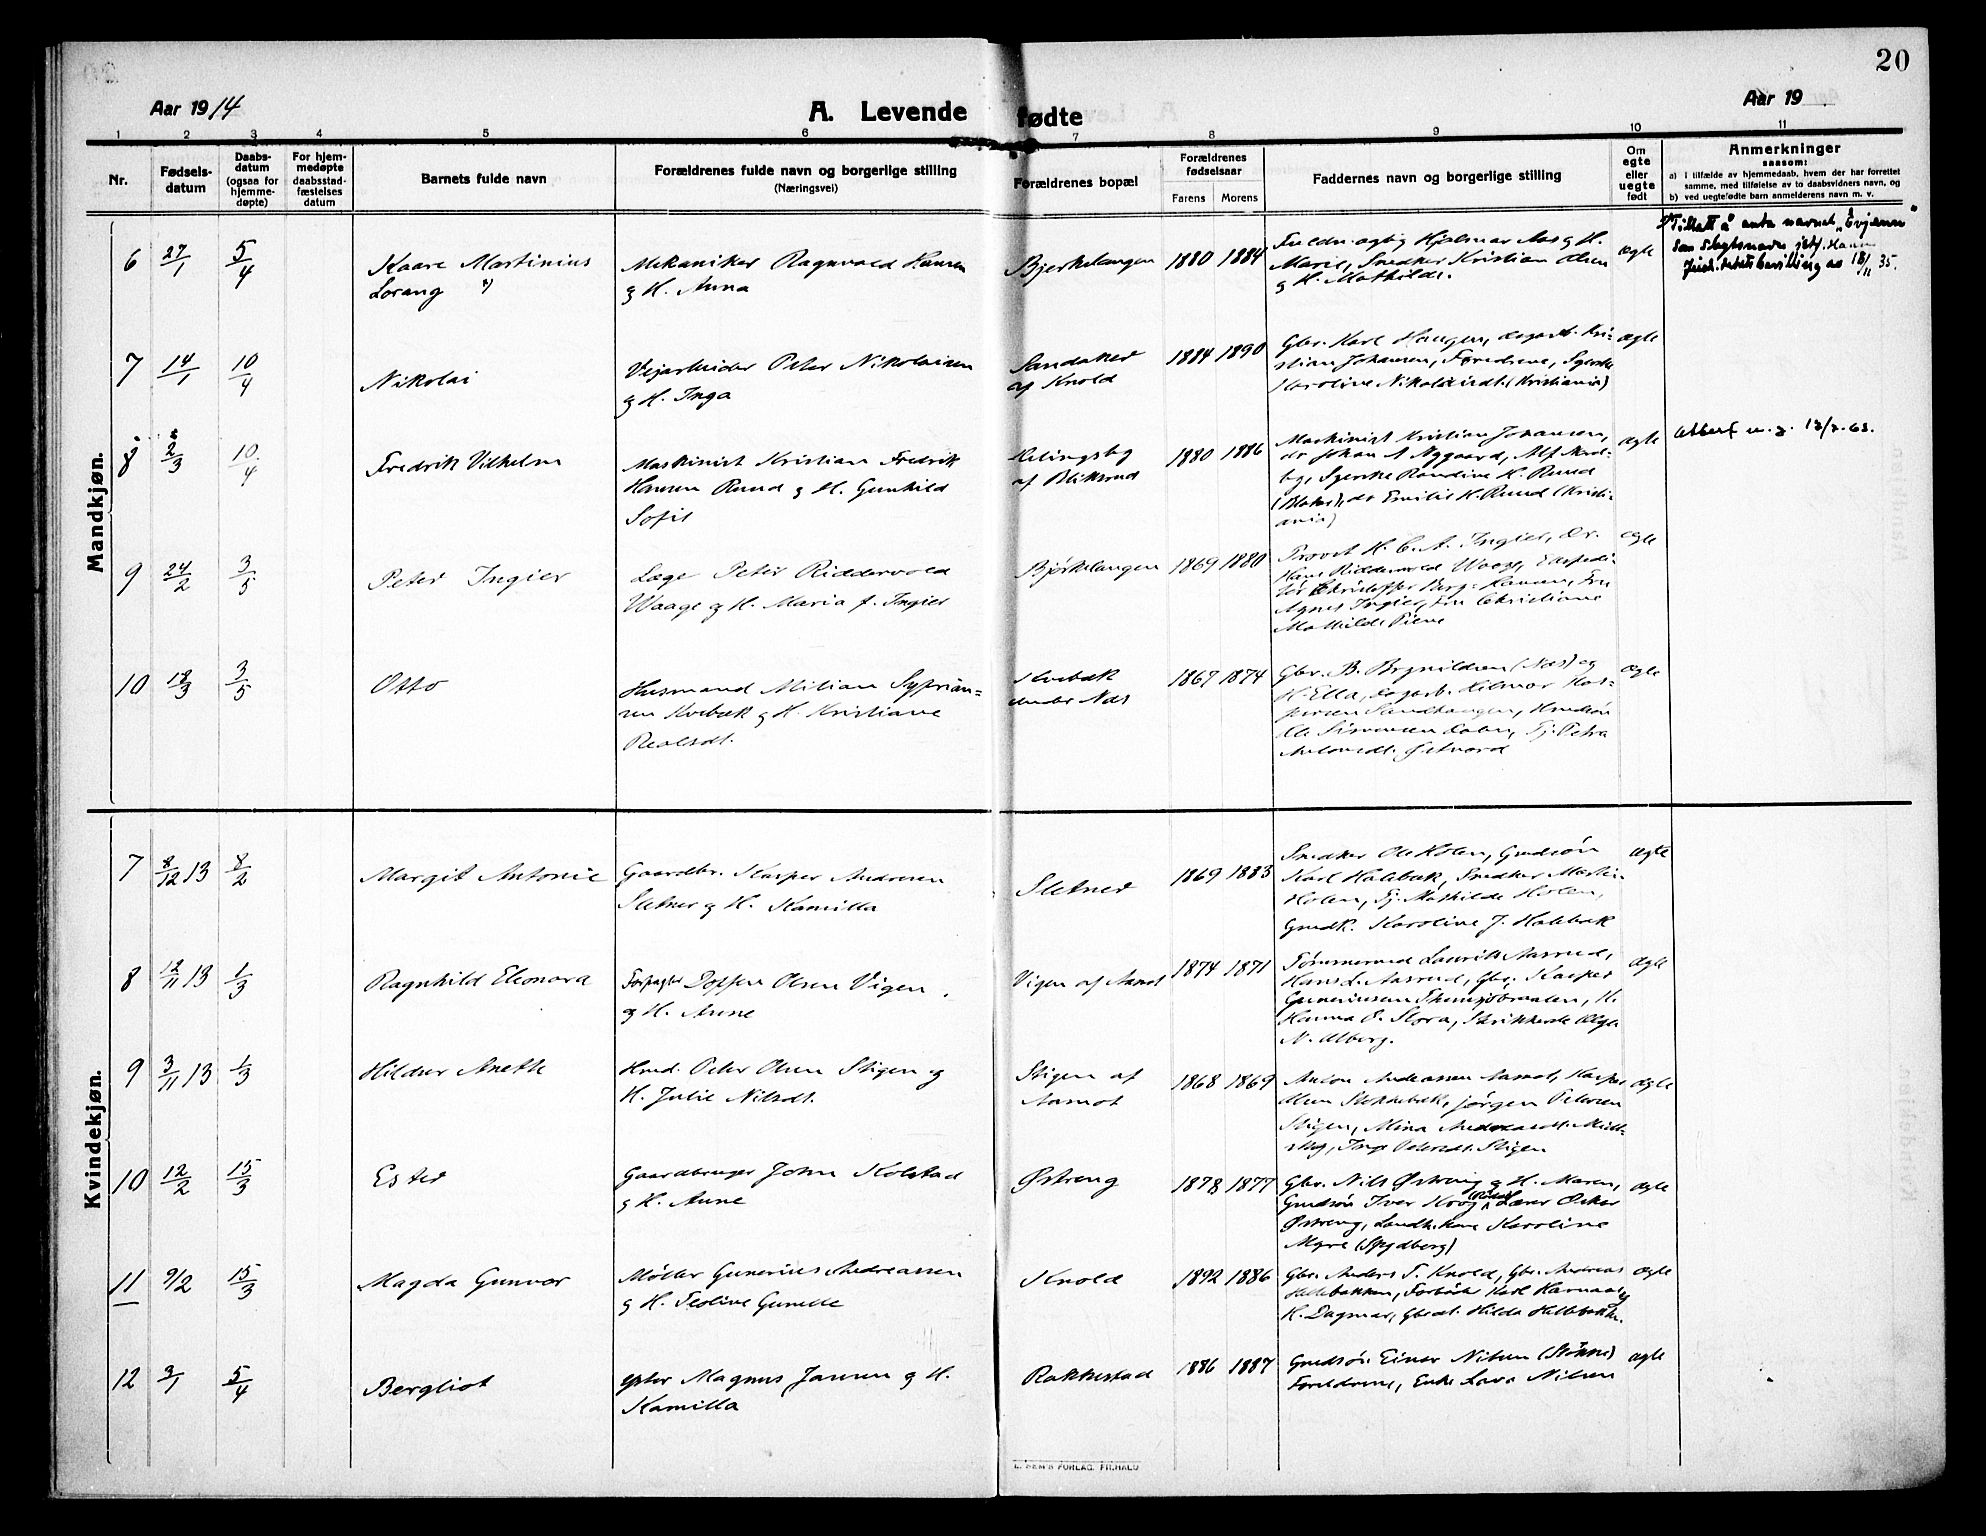 20
Aar 1914
A. Levende fødte
Aar 19
1 2 3 4 5 6 7 8 9 10 11
Nr.
Fødsels-
datum
Daabs-
datum
(ogsaa for
hjemme-
døpte)
For hjem-
medøpte
daabsstad-
fæstelses
datum
Barnets fulde navn
Forældrenes fulde navn og borgerlige stilling
(Næringsvei)
Forældrenes bopæl
Forældrenes
fødselsaar
Farens Morens
Faddernes navn og borgerlige stilling
Om
egte
eller
uegte
født
Anmerkninger
saasom:
a) i tilfælde av hjemmedaab, hvem der har forrettet
samme, med tilføielse av to daabsvidners navn, og
b) ved uegtefødte barn anmelderens navn m. v.
Mandkjøn.
6 27/1 5/4
Kaare Martinius
Lorang x)
Mekaniker Ragnvald Hansen
og H. Anna
Bjerkelangen
1880 1884
Hjalmar Aas og H.
Marie, Snedker Kristian Olsen
og H. Mathilde.
ægte
x) Tillatt å anta navnet "Evjemn"
som slegtsnavn jctf.
Just. dep.ts bevilling av 18/11 35.
7 14/1 10/4
Nikolai
Veiarbeider Peter Nikolaisen
og H. Inga
Sandaker
af Knold
1884 1890
Gbr. Karl Haugen, dagarb. Kri-
stian Johansen, Forældrene, Syerske
Karoline Nikolaisdt. (Kristiania)
ægte
8 2/3 10/4
Fredrik Vilhelm
Maskinist Kristian Fredrik
Hansen Ruud og H. Gunhild
Sofie
af Bliksrud
1880 1886
Maskinist Kristian Johansen,
do Johan A Nygaard, Alf
Syerske Randine H. Ruud
(Blaker), do Emilie H. Ruud (Kristi-
ania)
ægte
Utberf u. z. 13/7.63.
9 24/2 3/5
Peter Ingier
Læge Peter Riddervold
Waage og H. Maria f. Ingier
Bjørkelangen
1869 1880
Provst H. C. A. Ingier, Dr.
Hans Riddervold Waage, Ekspedi-
tør Christoffer Berg-Hansen, Fru
Agnes Ingier, Fru Christiane
Mathilde
ægte
10 18/3 3/5
Otto
Husmand Milian Syprian-
sen Kvebæk og H. Kristiane
Realsdt.
Kvebæk
under Næs
1867 1874
Gbr. B. Brynildsen (Næs) og
H. Ella, dagarb. Hilmar Kas-
persen Sandhaugen, Husmsøn
Ole Simonsen Pj. Petra
Antonsdt.
ægte
Kvindekjøn.
7 8/12 13 8/2
Margit Antonie
Gaardbr. Kasper Andresen
Sletner og H. Kamilla
Sletner
1869 1883
Snedker Ole Holen, Gmdsøn
Karl Halebæk, Snedker Martin
Holen, Pj. Mathilde Holen,
Gmdk. Karoline J. Halebæk
ægte
8 12/11 13 1/3
Ragnhild Eleonora
Forpagter Olsen Vigen
og H. Anne
Vigen af Aamot
1874 1871
Tømmermd Laurits Aasrud,
Hans L. Aasrud, Gbr. Kasper
Gunneriussen H.
Hanna E. Flora, Strikkerske Olga
N. Ulberg.
ægte
9 3/11 13 1/3
Hildur Anette
Hmd. Peter Olsen Stigen og
H. Julie Nilsdt.
Stigen af
Aamot
1868 1869
Anton Andreassen Aamot, Kasper
Olsen Slekkebæk, Jørgen Petersen
Stigen, Mina
Inga Petersdt. Stigen
ægte
10 12/2 15/3
Ester
Gaardbruger John Kolstad
og H. Anne
Østreng
1878 1877
Gbr. Nils Østreng og H. Maren,
Gmdsøn Iver Krog, Lærer Oskar
Østreng, Landh. Karoline
Myre (Spydberg)
ægte
11 9/2 15/3
Magda Gunvor
Møller Gunerius Andreassen
og H. Teoline Gunette
Knold
1892 1886
Gbr. Anders T. Knold, Gbr. Andreas
Hellebækken, Karl Harnaas og
H. Dagmar, Gbrdt. Hilda Hellebækk.
ægte
12 3/1 5/4
Bergliot
Magnus Jansen og H.
Kamilla
Rakkestad
1886 1887
Gmdsøn Einar Nilsen
Forældrene, Enke Lava Nilsen
ægte
E. SEM'S FORLAG, FR.HALD